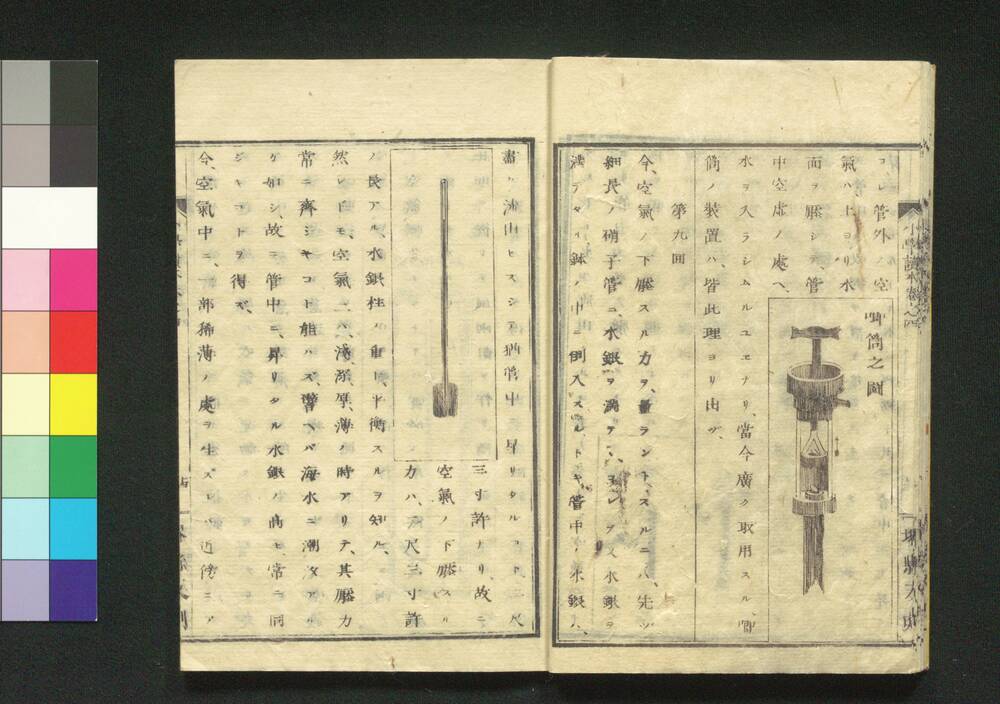 コレ管外ノ空
氣ハ上ヨリ水
面ヲ壓シテ、管
中空虚ノ處ヘ、
水ヲ入ラシムルユヱナリ、當今廣ク取用スル、喞
筒ノ裝置ハ、皆此理ヨリ由ヅ、
喞筒之圖
第九回
今、空氣ノ下壓スル力ヲ、量ラント、スルニハ、先ヅ
細長ノ硝子管ニ、水銀ヲ滿テ、コレヲ又水銀ヲ
滿テタル鉢ノ中ニ倒入スルトキ、管中ノ水銀ハ、
盡ク沸山セスシテ猶管中
昇リタルコト二尺
三寸許ナリ、故ニ
空氣ノ下壓スル
力ハ、二尺三寸許
ノ長アル、水銀柱ノ重ト、平衡スルヲ知ル、
然レトモ、空氣ニハ、淺深厚薄ノ時アリテ、其壓力
常ニ齊シキコト能ハズ、譬ヘバ海水ニ潮々アル
ガ如シ、故ニ管中ニ、昇リタル水銀ノ高モ、常ニ同
ジキコトヲ得ズ、
今、空氣中ニ、一部稀薄ノ處ヲ生ズレバ近傍ニア